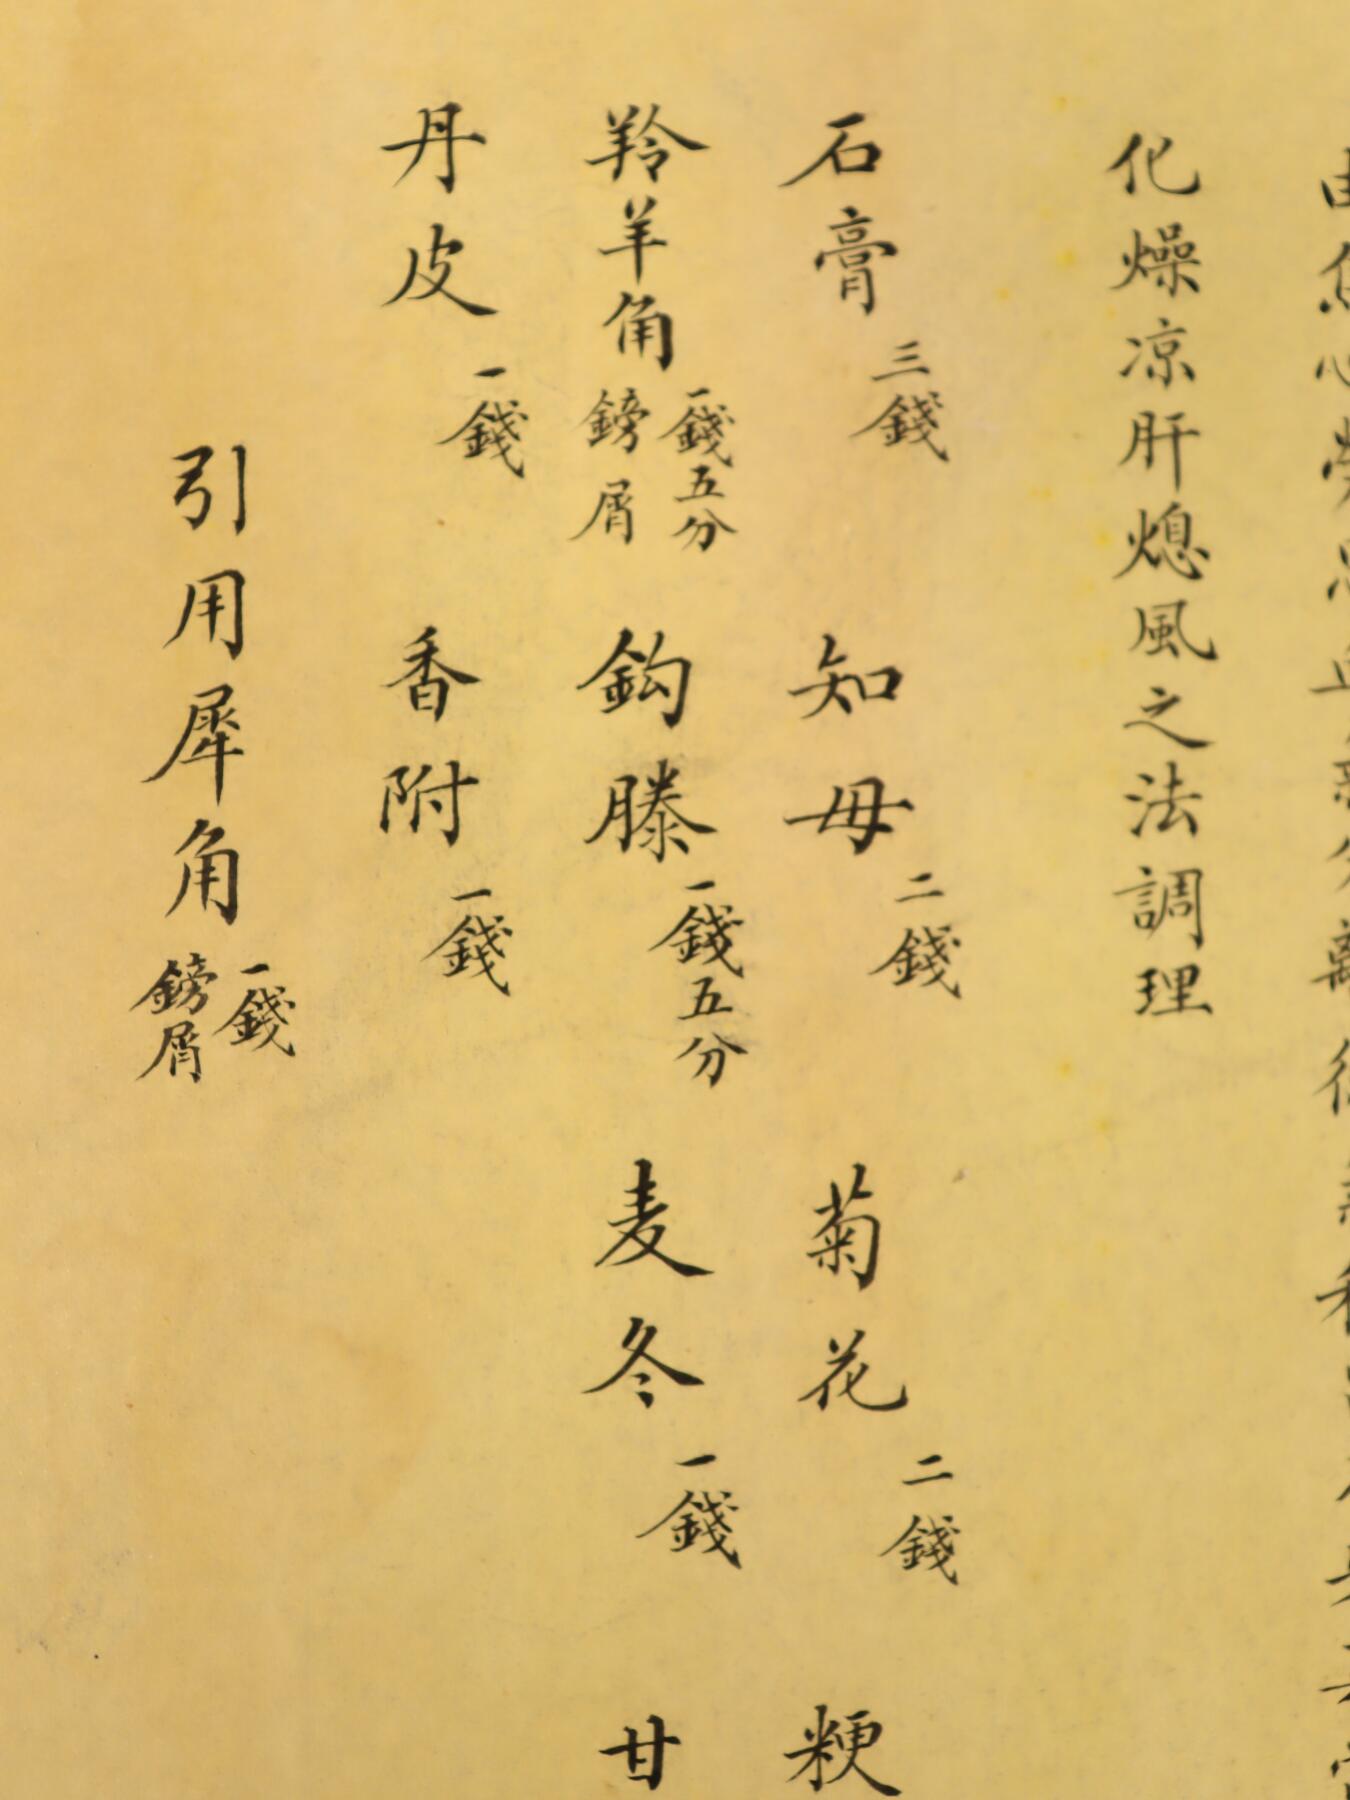 化燥凉肝熄風之法調理
石膏三錢 知母二錢 菊花二錢 粳
羚羊角一錢五分鎊屑 鈎滕一錢五分 麦冬一錢 甘
丹皮一錢 香附一錢
引用犀角一錢鎊屑